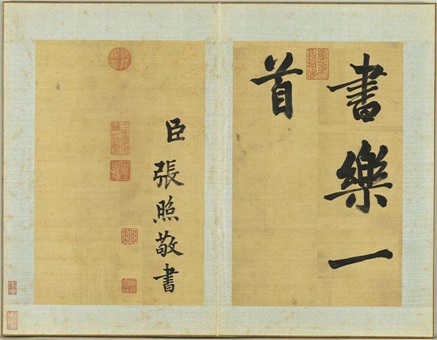 書樂一
首
臣
張照敬書